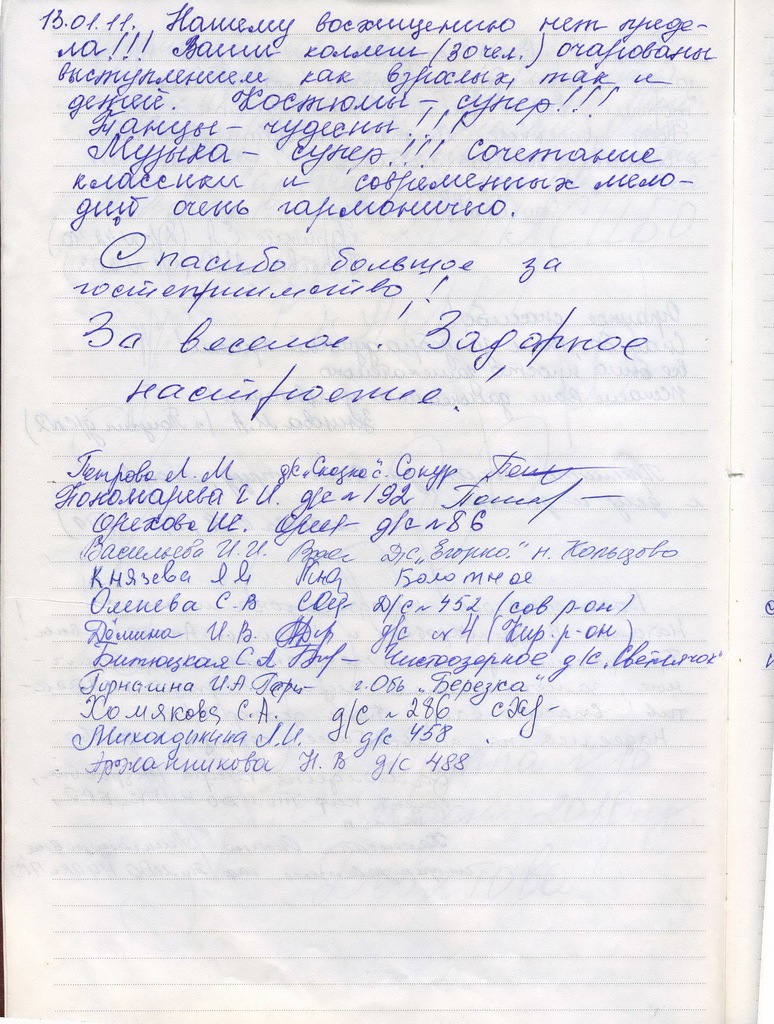 13.01.11. Нашему восхищению нет преде-
ла!!! Ваши коллеги (30 чел.) очарованы
выступлением как взрослых, так и
детей. Костюмы – супер!!!
Танцы – чудесны!!!
Музыка – супер!!! Сочетание
классики и современных мело-
дий очень гармонично.
Спасибо большое за
гостеприимство!
За веселое! Задорное
настроение!
Петрова Л. М д/с „Сказка" с. Сокур
Пономарева Г. И. д/с № 192
Орехова д/с № 86
Васильева И. И. Д/с „Егорка" п. Кольцово
Князева Болотное
Оленева С. В Д/с № 452 (сов р-он)
Дёмина И. В. д/с № 4 (Кир. р-он)
Битюцкая С. А Чистоозерное д/с „Светлячок"
И. А г. Обь „Березка"
Хомякова С. А. д/с № 286
Л. И. д/с 458
Аржанникова Н. В д/с 488